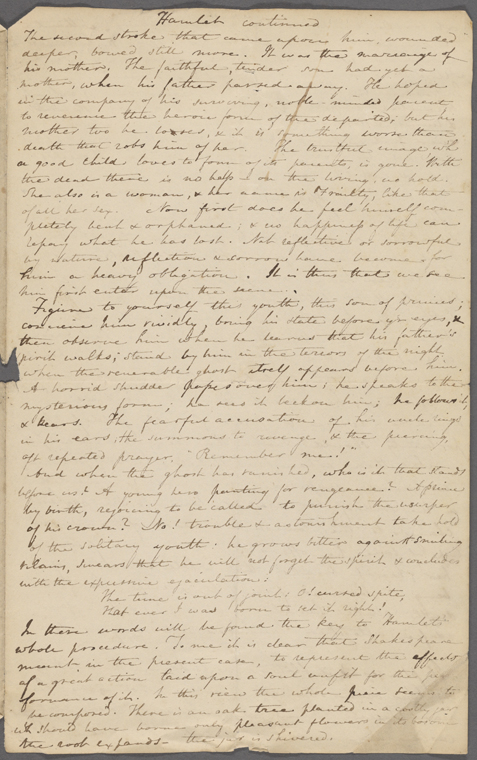 Hamlet continued
The second stroke that came upon him, wounded
deeper, bowed still more. It was the marriage of
his mother. The faithful, tender son had yet a
mother, when his father passed away. He hoped
in the company of his surviving, noble minded parent,
to reverence the heroic form of the departed; but his
mother too he loses, & it is something worse than
death that robs him of her. The trustful image wh
a good child loves to form of its parents, is gone. With
the dead there is no help - on the living no hold.
She also is a woman, & her name is Frailty, like that
of all her sex. Now first does he feel himself com-
pletely bent & orphaned; & no happiness of life can
repay what he has lost. Not reflective or sorrowful
by nature, reflection & sorrow have become for
him a heavy obligation. It is thus that we see
him first enter upon the scene.
Figure to yourself the youth, this son of princes;
conceive him vividly, bring his state before yr eyes, &
then observe him when he learns that his father's
spirit walks; stand by him in the terrors of the night
when the venerable ghost itself appears before him.
A horrid shudder passes over him; he speaks to the
mysterious form; he sees it beckon him; he follows it
& hears. The fearful accusation of his uncle rings
in his ears, the summons to revenge, & the piercing,
oft repeated prayer, "Remember me!"
And when the ghost has vanished, who is it that stands
before us? A young hero panting for vengeance? A prince
by birth, rejoicing to be called to punish the usurper
of his crown? No! trouble & astonishment take hold
of the solitary youth: he grows bitter against smiling
villains, swears that he will not forget the spirit & concludes
with the expressive ejaculation:
The time is out of joint: O! cursed spite,
That ever I was born to set it right!
In these words will be found the key to Hamlet's
whole procedure. To me it is clear that Shakespeare
meant, in the present case, to represent the effects
of a great action laid upon a soul unfit for the per-
formance of it. In this view the whole piece seems to
be composed. There is an oak tree planted in a costly jar
wh should have borne only pleasant flowers in its bosom
the root expands - the jar is shivered.